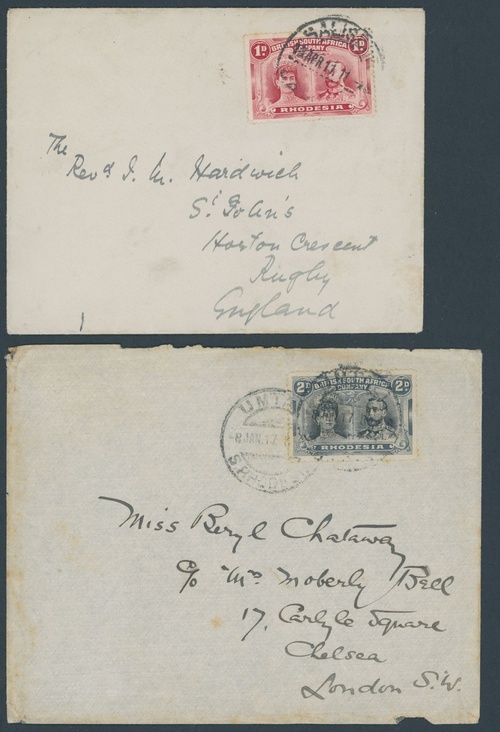 1D BRITISH SOUTH AFRICA 1D
COMPANY
RHODESIA
The
Revd J. M. Hardwich
St John's
Horton Crescent
Rugby
England
2D BRITISH SOUTH AFRICA 2D
COMPANY
RHODESIA
Miss Beryl Chataway
c/o Mrs Moberly Bell
17, Carlyle Square
Chelsea
London S.W.